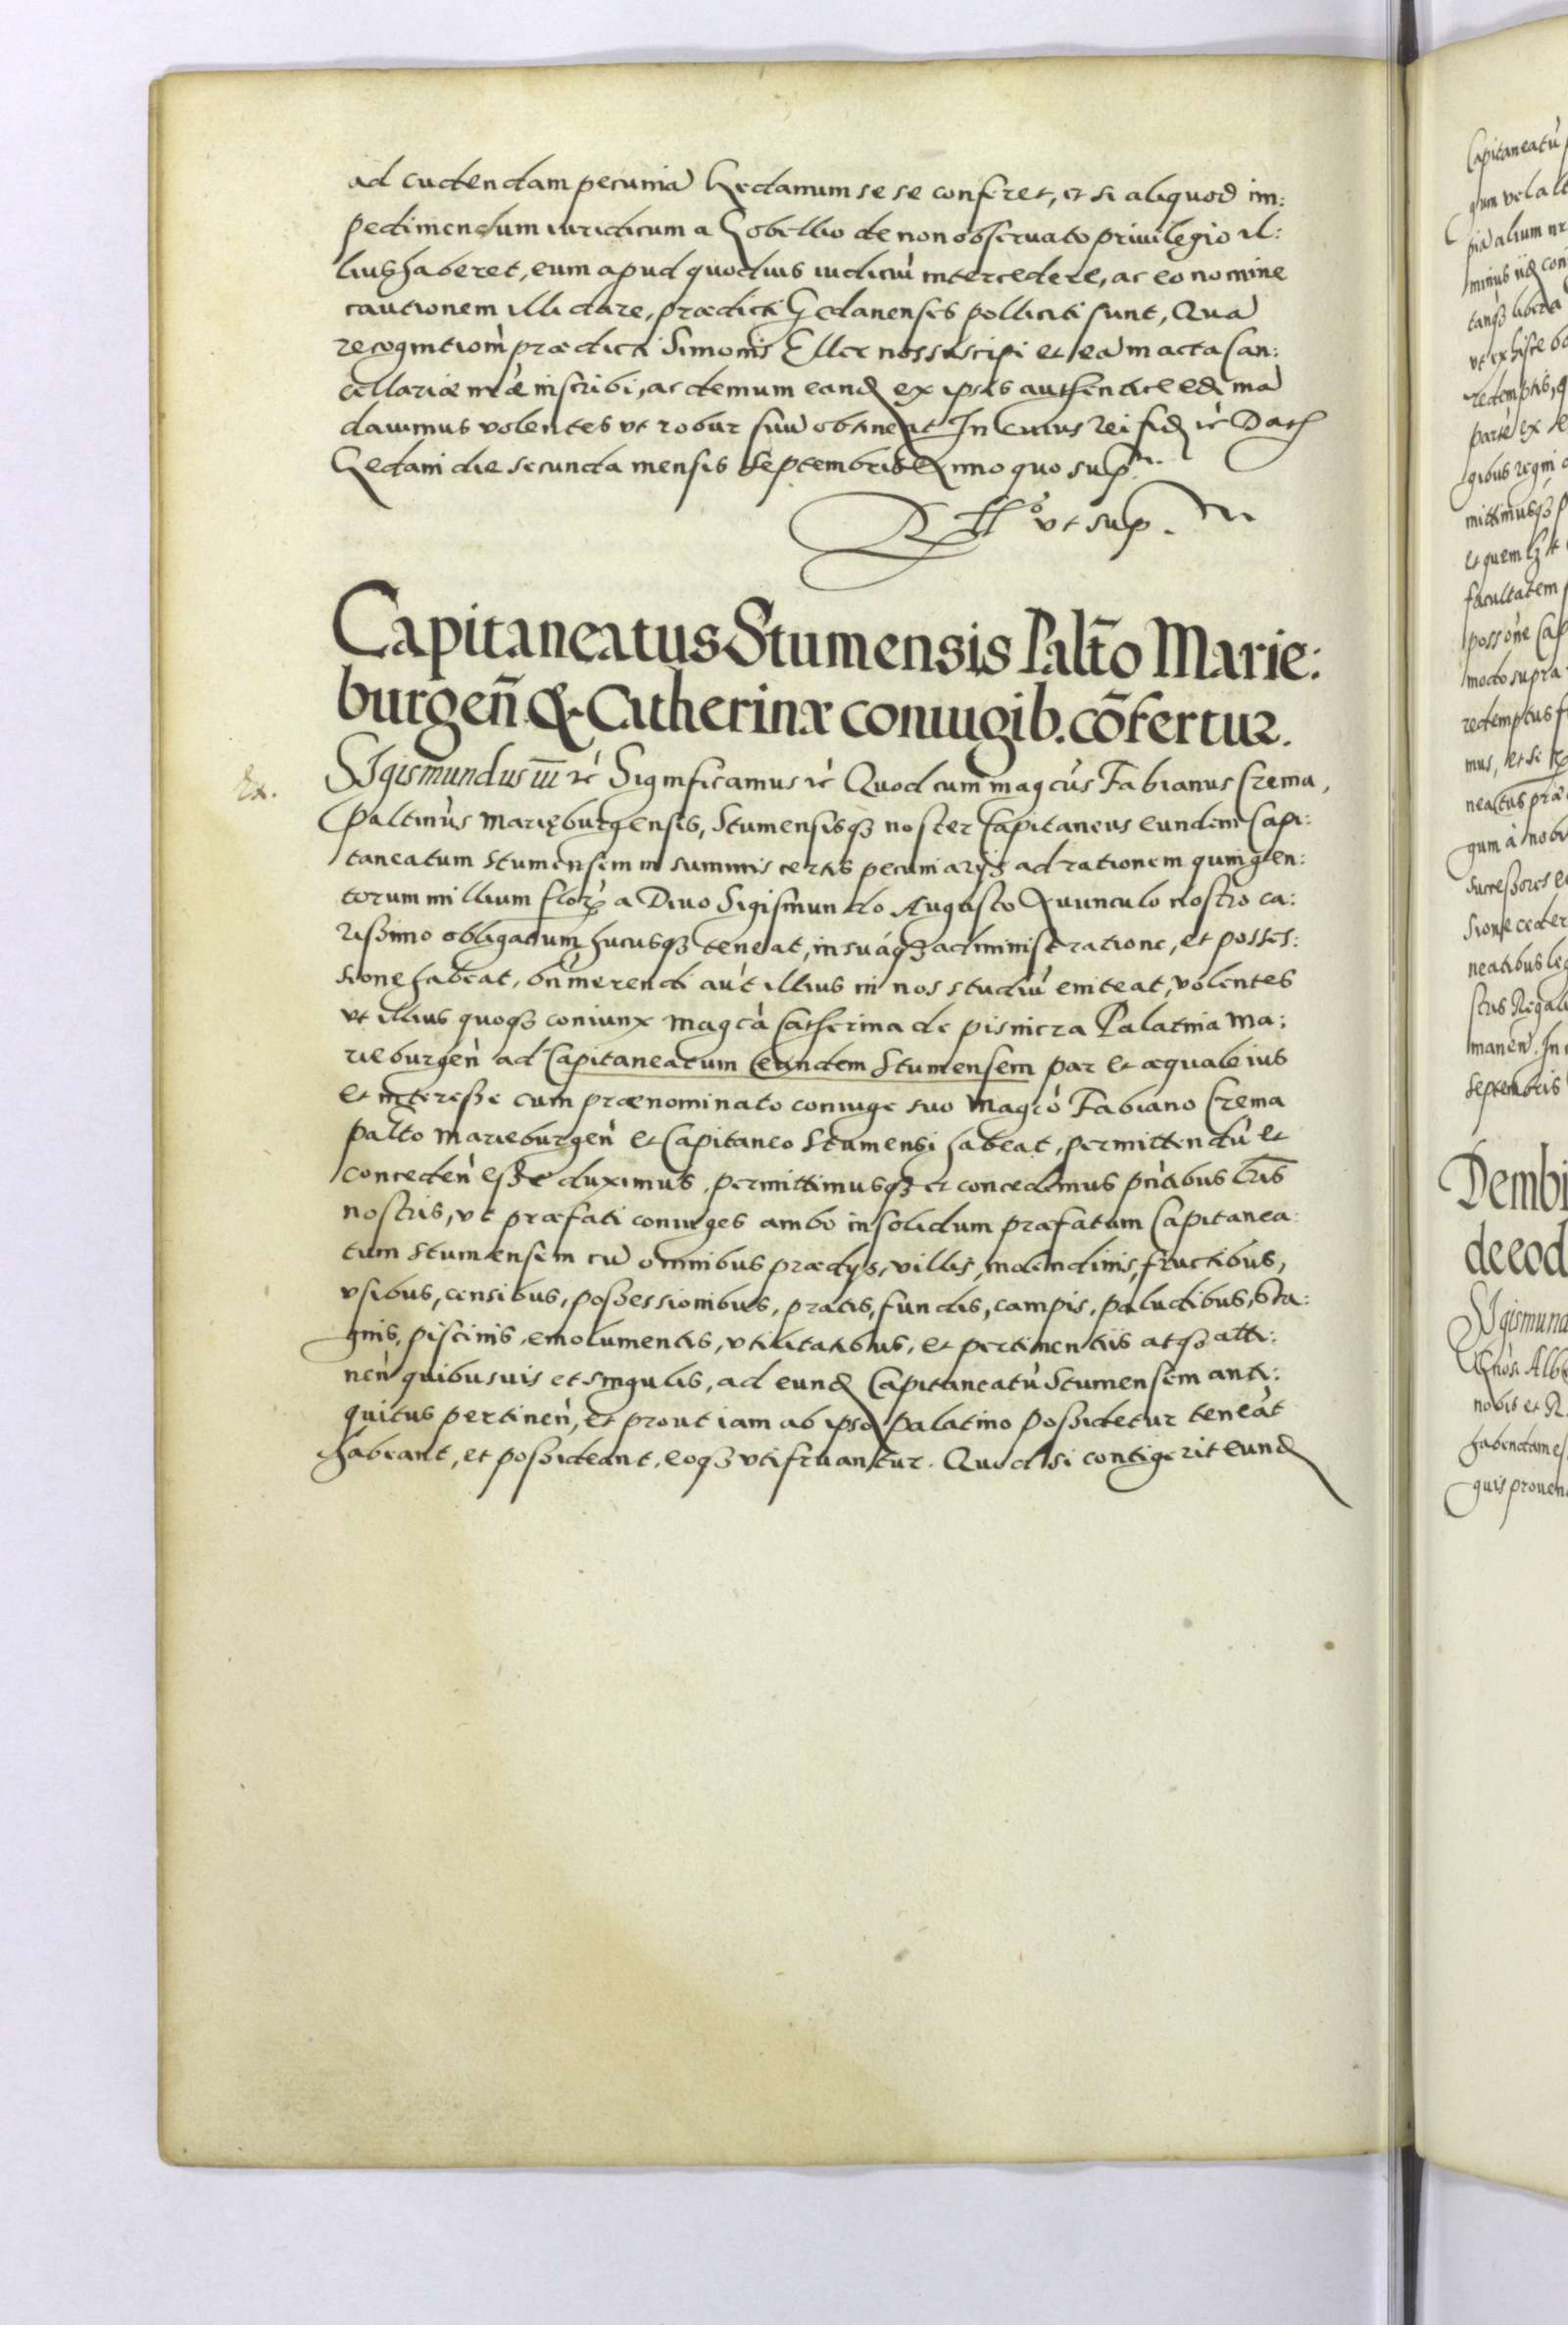 ad cudendam pecuniā Gedanum se se conferet, et si aliquod im:
pedimendum iuridicum a Gobellio de non obseruato priuilegio il:
lius haberet, eum apud quoduis iudiciū intercedere, ac eo nomine
cautionem illi dare, prædicti Gedanenses polliciti sunt, Quā
recognitionē prædicti Simonis Eller nos suscipi et eā in acta Can:
cellariæ nr̄æ inscribi, ac demum eand ex ipsis authentice edi mā
dauimus volentes vt robur suū obtineat In cuius rei fid rć Dat
Gedani die secunda mensis Septembris Anno quo sup
R ut sup.
Capitaneatus Stumensis Palt̄o Marie:
burgen̄ & Catherinæ coniugib. cōfertur.
Ex.
SIgismundus iii rć Significamus rć Quod cum magcūs Fabianus Crema,
Paltinūs Marięburgensis, Stumensisqʒ noster Capitaneus eundem Capi:
taneatum Stumensem in summis certis pecuniarijs ad rationem quingen:
torum millium flor a Diuo Sigismundo Augusto Auunculo nostro ca:
rissimo obligatum hucusqʒ teneat, in suáqʒ administratione, et posses:
sione habeat, bn̄merendi aūt illius in nos studiū eniteat, volentes
vt illius quoqʒ coniunx Magcā Catherina de pisnicza Palatina Ma:
rieburgen̄ ad Capitaneatum eundem Stumensem par et æquale ius
et interesse cum prænominato coniuge suo Magcō Fabiano Crema
palto Marieburgen̄ et Capitaneo Stumensi habeat, permittendū et
conceden̄ esse duximus, permittimusqʒ et concedimus pn̄tibus lr̄is
nostris, vt præfati coniuges ambo in solidum præfatum Capitanea:
tum Stumensem cū omnibus prædijs, villis, molendinis, fructibus,
vsibus, censibus, possessionibus, pratis, fundis, campis, paludibus, sta:
gnis, piscinis, emolumentis, vtilitatibus, et pertinentiis atqʒ atti:
nen̄ quibusuis et singulis, ad eund Capitaneatū Stumensem anti:
quitus pertinen̄, et prout iam ab ipso palatino possidetur teneāt
habeant, et possideant, eoqʒ vtifruantur. Quod si contigerit eund
Capitaneatū
gum vel alt
minus iid con
tanqʒ libera
redemptis, q
parte ex se
gibus regni
mittimusqʒ p
et quem
facultatem
possōne Cap
modo supra
redemptus f
mus, et si
neatus præ
gum à nobi
successores e
sione ceder
neatibus leg
stus Regali
manen̄. In
Septembris
Dembi
de eod
SIgismund
nobis et R
habendam es
quis prouen